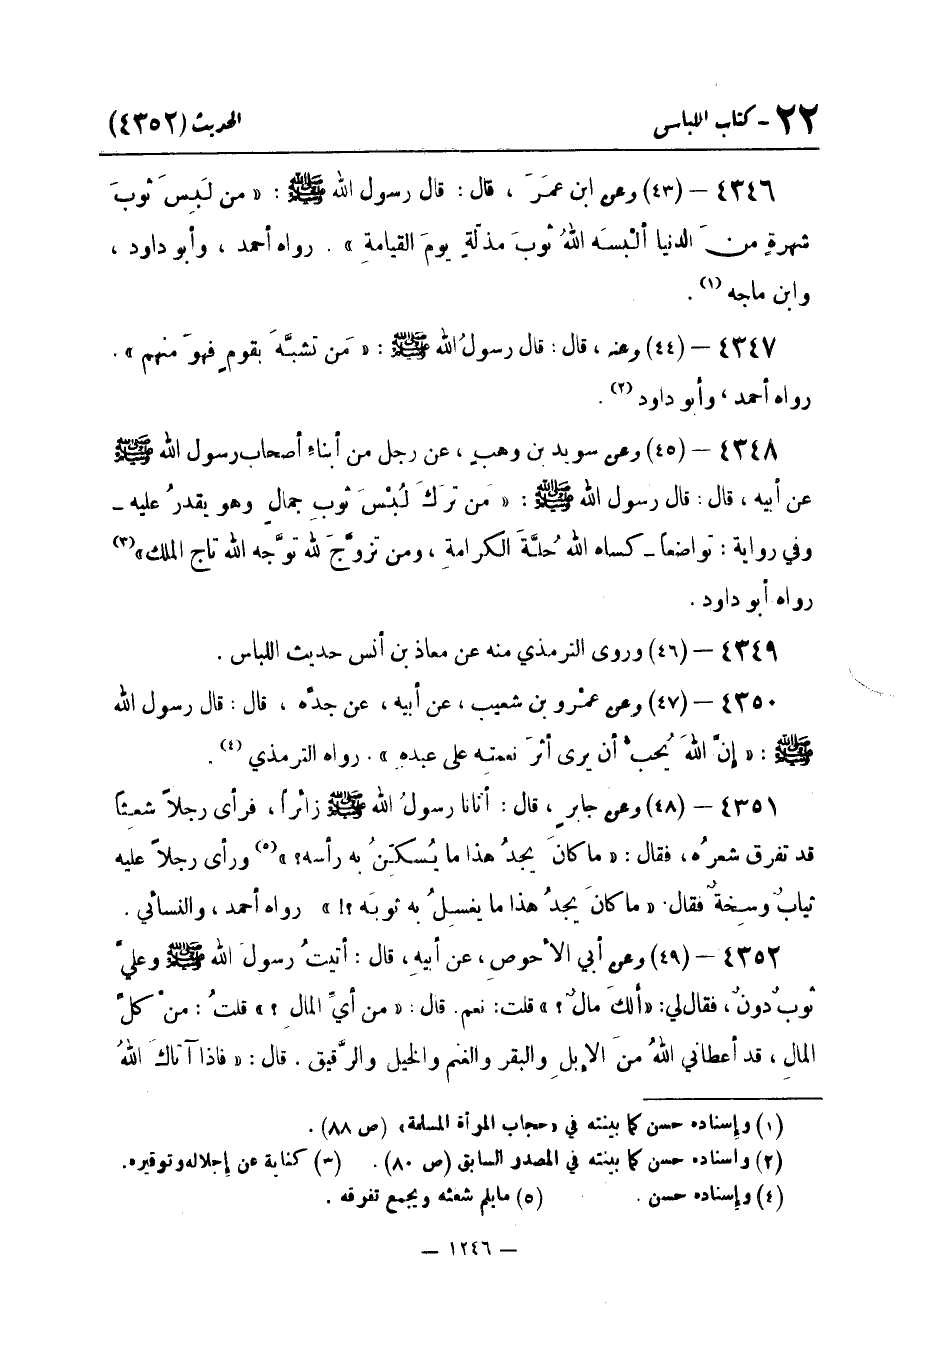 ٢٢ - كتاب اللباس الحديث (٤٣٥٢)
٤٣٤٦ - (٤٣) وعن ابن عمرَ ، قال : قال رسول الله ﷺ : « من لَبِسَ ثوبَ
شهرةٍ منَ الدنيا ألبسَه اللهُ ثوبَ مذلّةٍ يومَ القيامة » . رواه أحمد ، وأبو داود ،
وابن ماجه (١) .
٤٣٤٧ - (٤٤) وعنه ، قال : قال رسولُ الله ﷺ : « مَن تشبَّهَ بقومٍ فهوَ منهم » .
رواه أحمد ، وأبو داود (٢) .
٤٣٤٨ - (٤٥) وعن سويد بن وهبٍ ، عن رجل من أبناءِ أصحاب رسول الله ﷺ
عن أبيه ، قال : قال رسول الله ﷺ : « مَن تَركَ لُبْسَ ثوبِ جمالٍ وهو يقدرُ عليه -
وفي رواية : تواضعاً - كساه اللهُ حُلَّةَ الكرامةِ ، ومن تزوَّجَ لله توَّجه الله تاج الملك» (٣)
رواه أبو داود .
٤٣٤٩ - (٤٦) وروى الترمذي منه عن معاذ بن أنس حديث اللباس .
٤٣٥٠ - (٤٧) وعن عمْرو بن شعيب ، عن أبيه ، عن جدَّه ، قال : قال رسول الله
ﷺ : « إنَّ اللهَ يُحبُّ أن يرى أثرَ نعمتِه على عبده » . رواه الترمذي (٤) .
٤٣٥١ - (٤٨) وعن جابرٍ ، قال : أتانا رسولُ الله ﷺ زائراً ، فرأى رجلاً شعِثاً
قد تفرق شعرُه ، فقال : « ما كانَ يجدُ هذا ما يُسكّنُ به رأسه؟ » (٥) ورأى رجلاً عليه
ثيابٌ وسِخةٌ فقال : « ما كانَ يجدُ هذا ما يغسلُ به ثوبَه ؟! » رواه أحمد ، والنسائي .
٤٣٥٢ - (٤٩) وعن أبي الأحوص ، عن أبيهِ ، قال : أتيتُ رسولَ الله ﷺ وعليَّ
ثوبٌ دونٌ ، فقال لي: «ألكَ مالٌ ؟ » قلت: نعم. قال : « من أيِّ المال ؟ » قلتُ : منْ كلِّ
المالِ ، قد أعطاني اللهُ منَ الإبلِ والبقر والغنم والخيل والرَّقيق . قال : « فاذا آتاكَ اللهُ
(١) وإسناده حسن كما بينته في «حجاب المرأة المسلمة» (ص ٨٨) .
(٢) واسناده حسن كما بينته في المصدر السابق (ص ٨٠) . (٣) كناية عن إجلاله وتوقيره .
(٤) وإسناده حسن . (٥) ما يلم شعثه ويجمع تفرقه .
- ١٢٤٦ -